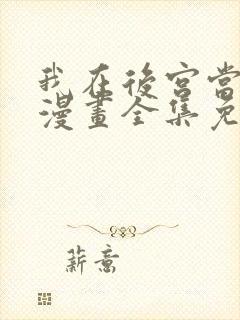 我在後宮當
漫畫全集免
薪意